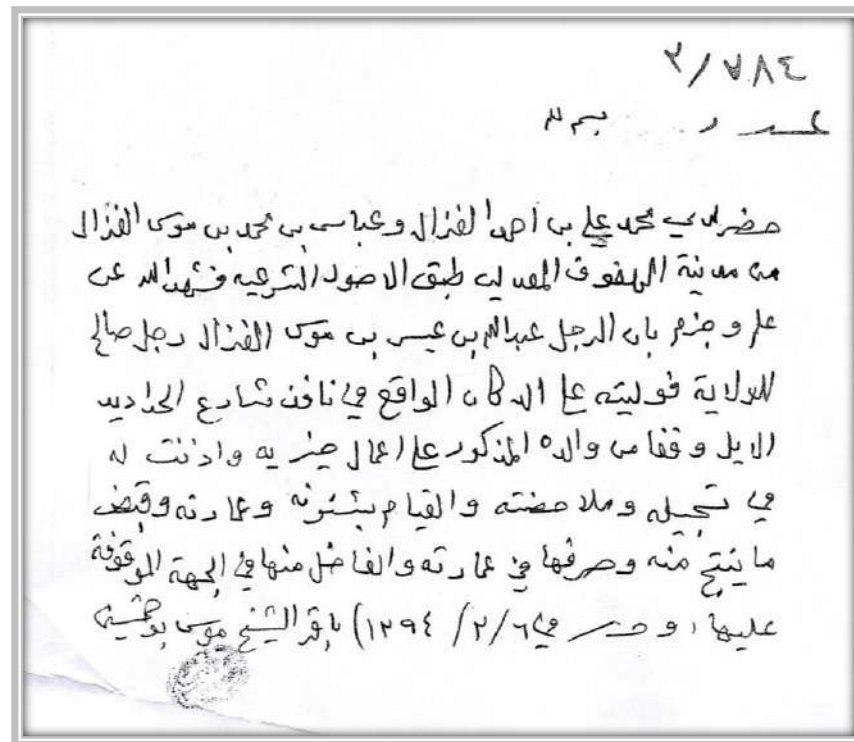 ٣/٧٨٤
عدد بسم الله
حضر لدي محمد علي بن احمد الغزال وعباس بن محمد بن موسى الغزال
من مدينة الهفوف المعدلين طبق الاصول الشرعيه فشهدا لله عن
علم وجزم بان الرجل عبدالله بن عيسى بن موسى الغزال رجل صالح
للولاية فوليته على الدكان الواقع في نافذ شارع الحداديد
الايل وقفا من والده المذكور على اعمال خيريه واذنت له
في تسجيله وملاحضته والقيام بشئونه وعمارته وقبض
ما ينتج منه وصرفها في عمارته والفاضل منها في الجهة الموقوفة
عليها، وحرر في ١٣٩٤/٢/٦) باقر الشيخ موسى بوخمسين